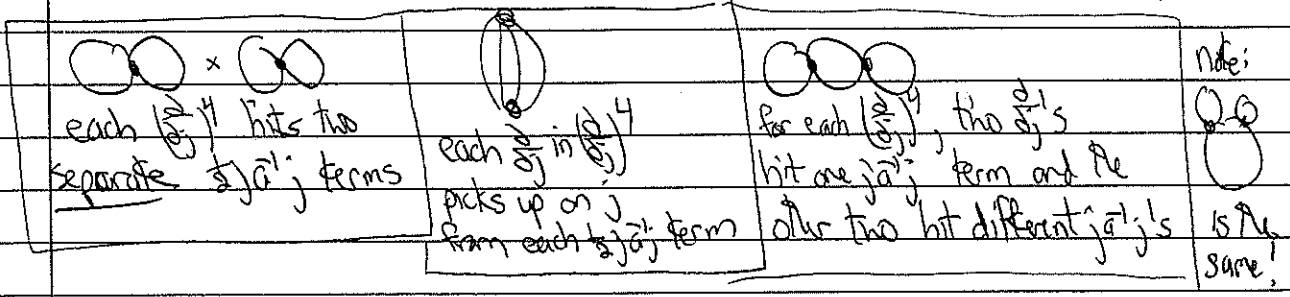 ×
each (∂/∂j)⁴ hits two
separate ½ja⁻¹j terms
each ∂/∂j in (∂/∂j)⁴
picks up on j
from each ½ja⁻¹j term
for each (∂/∂j)⁴, two ∂/∂j's
hit one ja⁻¹j term and the
other two hit different ja⁻¹j's
note:
is the
same!